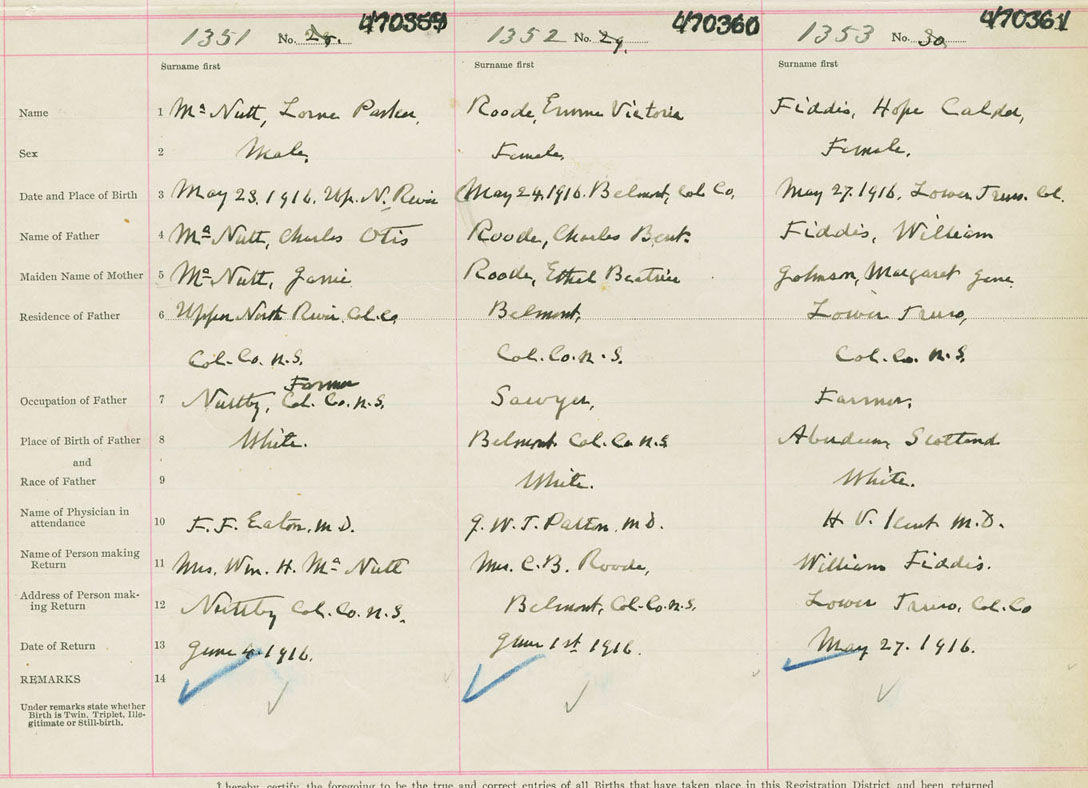 470359 470360 470361
1351 No. 28. 1352 No. 29. 1353 No. 30
Surname first Surname first Surname first
Name 1 Mc Nutt, Lorne Parker, Roode, Emma Victoria Fiddis, Hope Calder,
Sex 2 Male, Female, Female,
Date and Place of Birth 3 May 23, 1916, Up. N. River May 24, 1916. Belmont, Col. Co, May 27. 1916, Lower Truro. Col.
Name of Father 4 Mc Nutt, Charles Otis Roode, Charles Bent. Fiddis, William
Maiden Name of Mother 5 Mc Nutt, Janie Roode, Ethel Beatrice Johnson, Margaret Jane
Residence of Father 6 Upper North River, Col. Co, Belmont, Lower Truro,
Col. Co. N.S. Col. Co. N.S. Col. Co. N.S
Farmer
Occupation of Father 7 Nuttby, Col. Co. N.S. Sawyer, Farmer,
Place of Birth of Father 8 White. Belmont Col. Co N.S Aberdeen, Scotland
and
Race of Father 9 White. White.
Name of Physician in attendance 10 F. F. Eaton, M.D. J. W. T. Patton, M.D. H V. Kent M.D.
Name of Person making Return 11 Mrs. Wm. H. Mc Nutt Mrs. C. B. Roode, William Fiddis.
Address of Person making Return 12 Nuttby Col. Co. N.S. Belmont, Col. Co. N.S. Lower Truro, Col. Co
Date of Return 13 June 4. 1916. June 1st 1916. May 27. 1916.
REMARKS 14
Under remarks state whether
Birth is Twin, Triplet, Ille-
gitimate or Still-birth.
I hereby, certify, the foregoing to be the true and correct entries of all Births that have taken place in this Registration District, and been returned